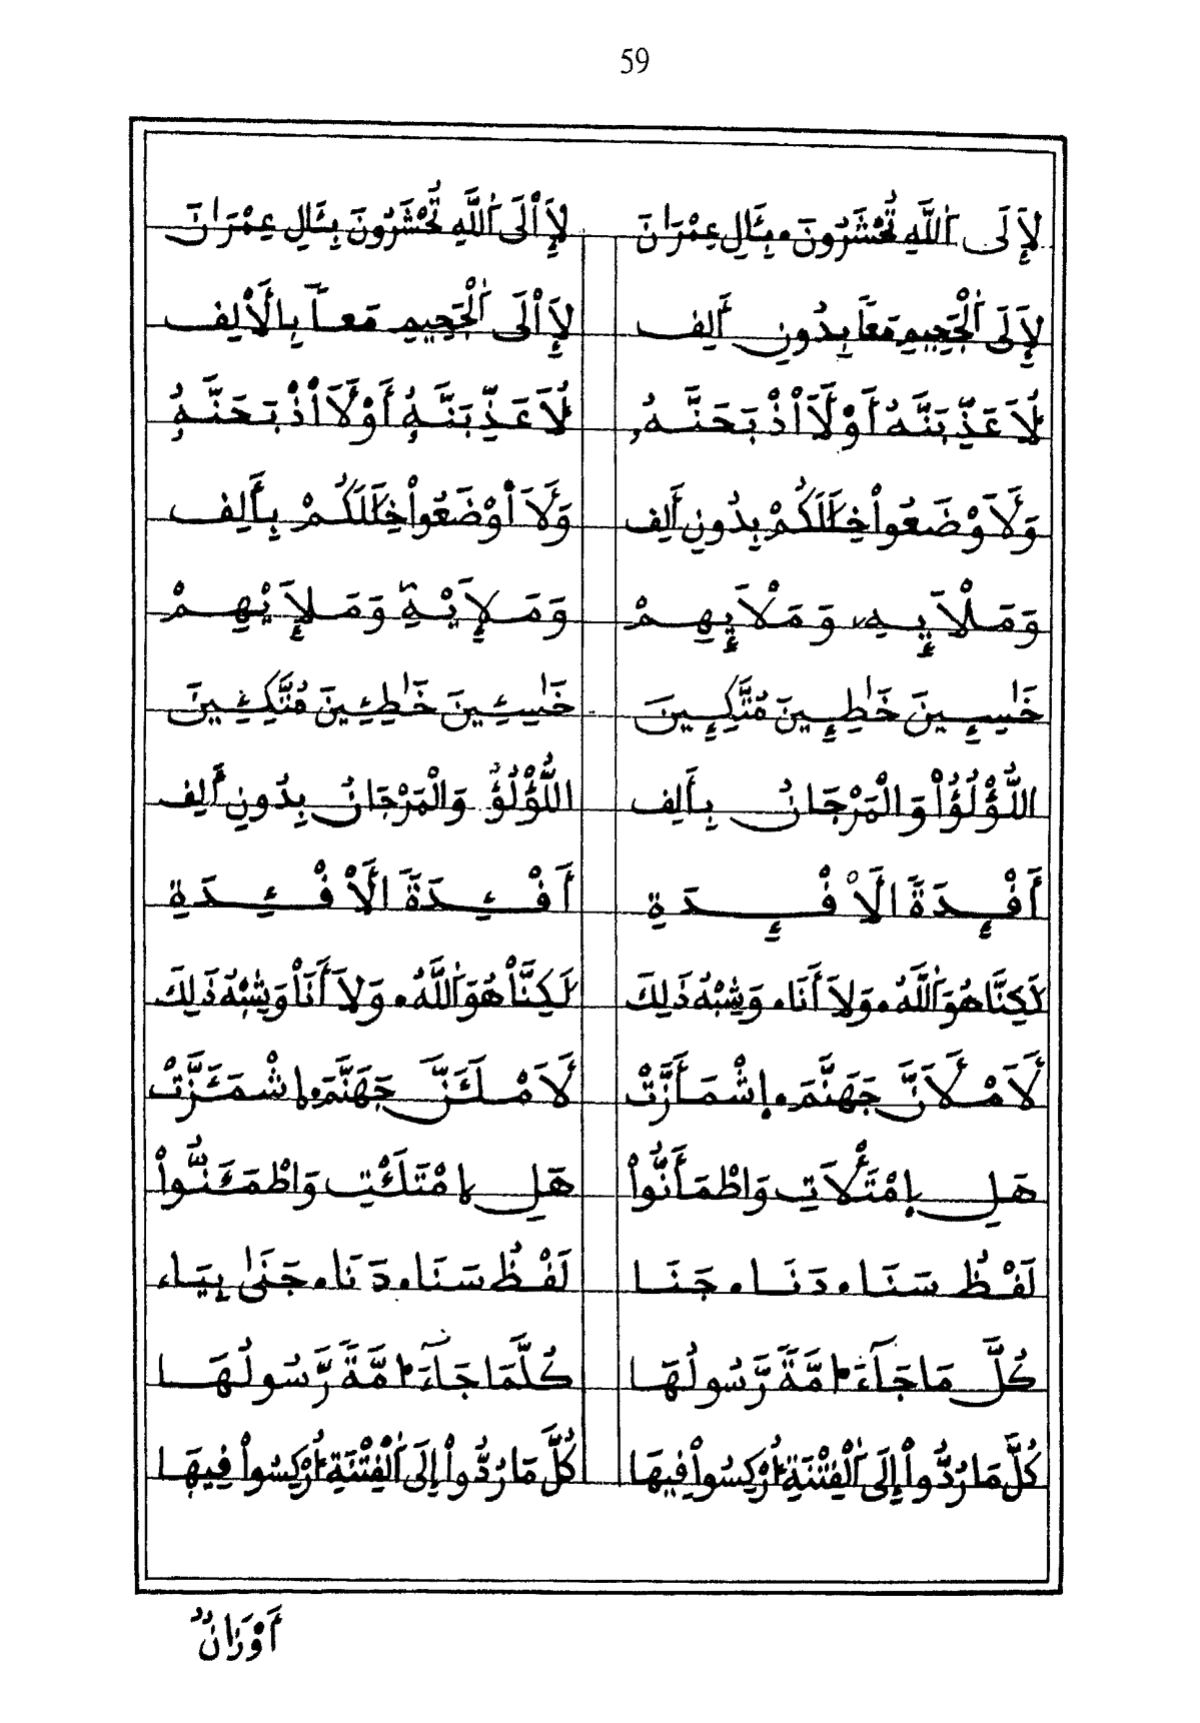 59
لَإِلَى اَ۬للَّهِ تُحْشَرُونَ، بِـَٔالِ عِمْرَٰنَ لَإِاْلَى اَ۬للَّهِ تُحْشَرُونَ بِـَٔالِ عِمْرَٰنَ
لَإِلَى اَ۬لْجَحِيمِ مَعاً بِدُونِ أَلِف لَإِاْلَى اَ۬لْجَحِيمِ مَعاً بِالْأَلِف
لَأُعَذِّبَنَّهُ أَوْ لَأَاْذْبَحَنَّهُ لَأُعَذِّبَنَّهُ أَوْ لَأَاْذْبَحَنَّهُ
وَلَأَوْضَعُواْ خِلَٰلَكُمْ بِدُونِ أَلِف وَلَأَاْوْضَعُواْ خِلَٰلَكُمْ بِأَلِف
وَمَلَإِيْهِ، وَمَلَإِيْهِمْ وَمَلَإِيْهِ وَمَلَإِيْهِمْ
خَٰسِـِٕينَ خَٰطِـِٕينَ مُتَّكِـِٕينَ خَٰسِـِٕينَ خَٰطِـِٕينَ مُتَّكِـِٕينَ
اللُّؤْلُؤُاْ وَالْمَرْجَانُ بِأَلِف اللُّؤْلُؤُ وَالْمَرْجَانُ بِدُونِ أَلِف
أَفْـِٕدَةً الَأْفْـِٕدَةِ أَفْـِٕدَةً الَأْفْـِٕدَةِ
لَكِنَّا هُوَ اَ۬للَّهُ، وَلَا أَنَا، وَشِبْهُ ذَلِكَ لَكِنَّاْ هُوَ اَ۬للَّهُ، وَلَا أَنَاْ وَشِبْهُ ذَلِكَ
لَأَمْلَأَنَّ جَهَنَّمَ، إِشْمَأَزَّتْ لَأَمْلَـَٔنَّ جَهَنَّمَ، اِشْمَـَٔزَّتْ
هَلِ إِمْتَلَأْتِ وَاطْمَأَنُّواْ هَلِ اِمْتَلَـْٔتِ وَاطْمَـَٔنُّواْ
لَفْظُ سَنَا، دَنَا، جَنَا لَفْظُ سَنَا، دَنَا، جَنَىٰ بِيَاء
كُلَّ مَا جَآءَ امَّةً رَّسُولُهَا كُلَّمَا جَآءَ امَّةً رَّسُولُهَا
كُلَّ مَا رُدُّواْ إِلَى اَ۬لْفِتْنَةِ أُرْكِسُواْ فِيهَا كُلَّ مَا رُدُّواْ إِلَى اَ۬لْفِتْنَةِ أُرْكِسُواْ فِيهَا
أَوْزَانٌ